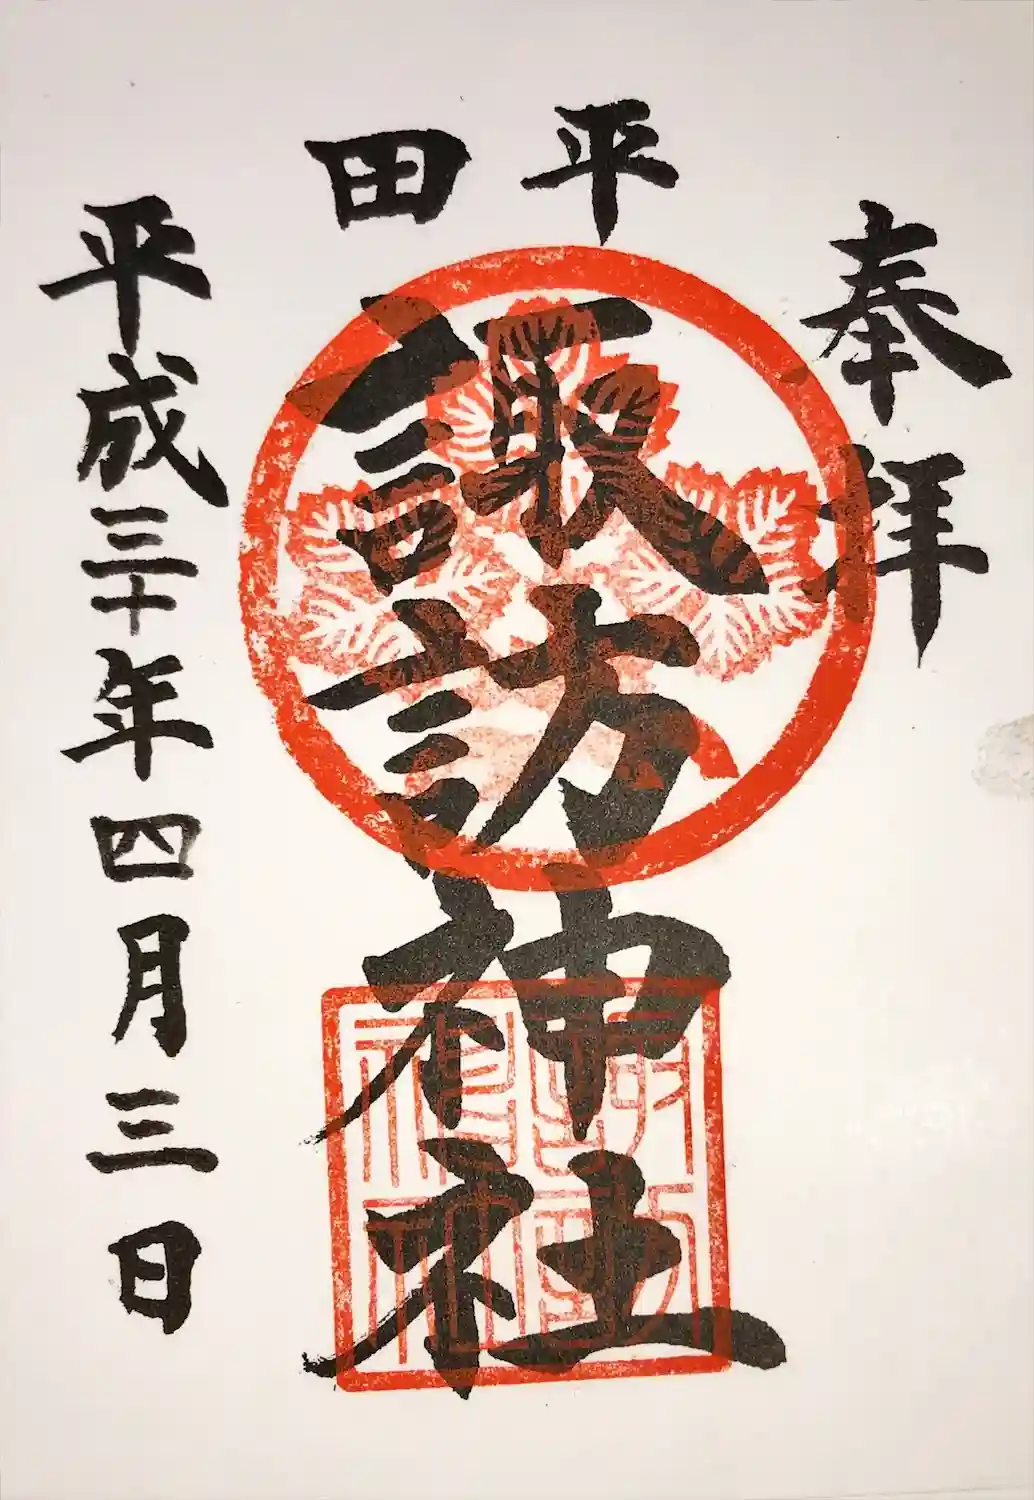 奉拝
平田
諏訪神社
平成三十年四月三日
諏訪神社